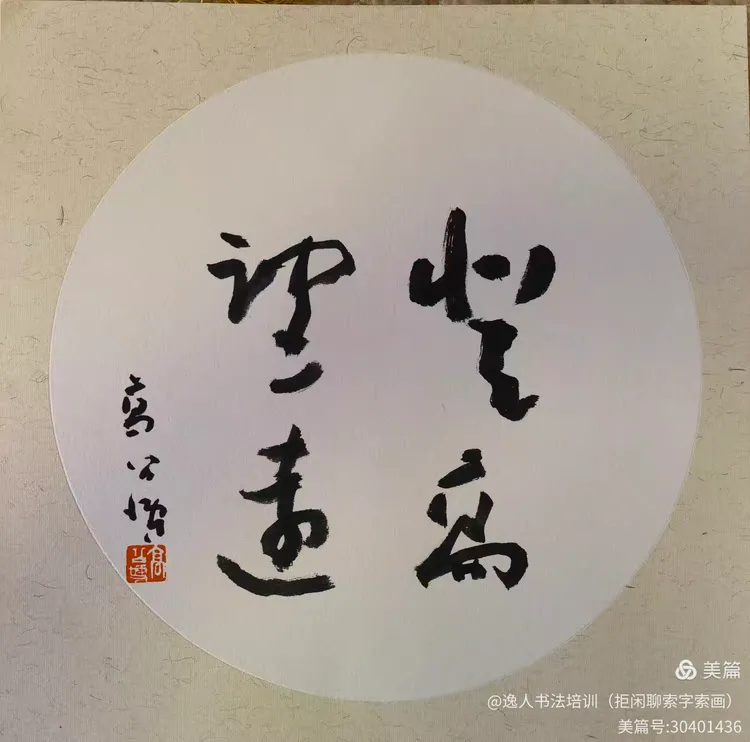 登高
望远
高公博
美篇
@逸人书法培训（拒闲聊索字索画）
美篇号:30401436